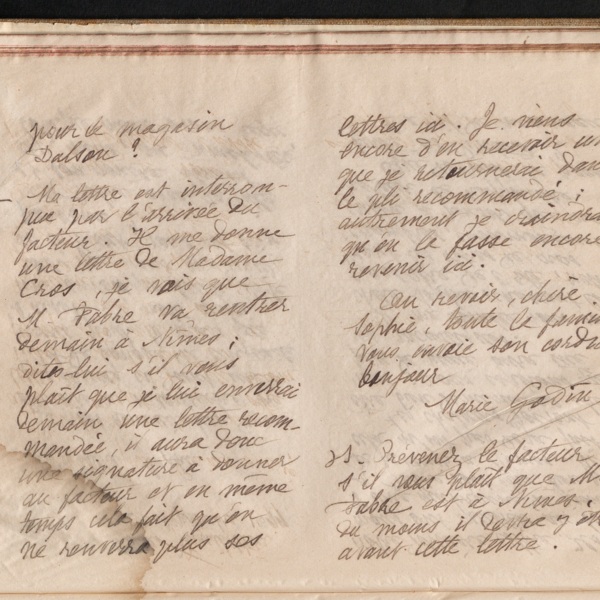 pour le magasin
Dalson ?
Ma lettre est interrom-
pue par l'arrivée du
facteur. Il me donne
une lettre de Madame
Cros, je vois que
M. Fabre va rentrer
demain à Nîmes ;
dites-lui s'il vous
plaît que je lui enverrai
demain une lettre recom-
mandée, il aura donc
une signature à donner
au facteur et en même
temps cela fait qu'on
ne renverra plus ses
lettres ici. Je viens
encore d'en recevoir une
que je retournerai dans
le pli recommandé ;
autrement je craindrai
qu'on la fasse encore
revenir ici.
Au revoir, chère
Sophie, toute la famil
vous envoie son cordia
bonjour
Marie Godin
PS. Prévenez le facteur
s'il vous plaît que M.
Fabre est à Nîmes.
du moins il devra y êt
avant cette lettre.